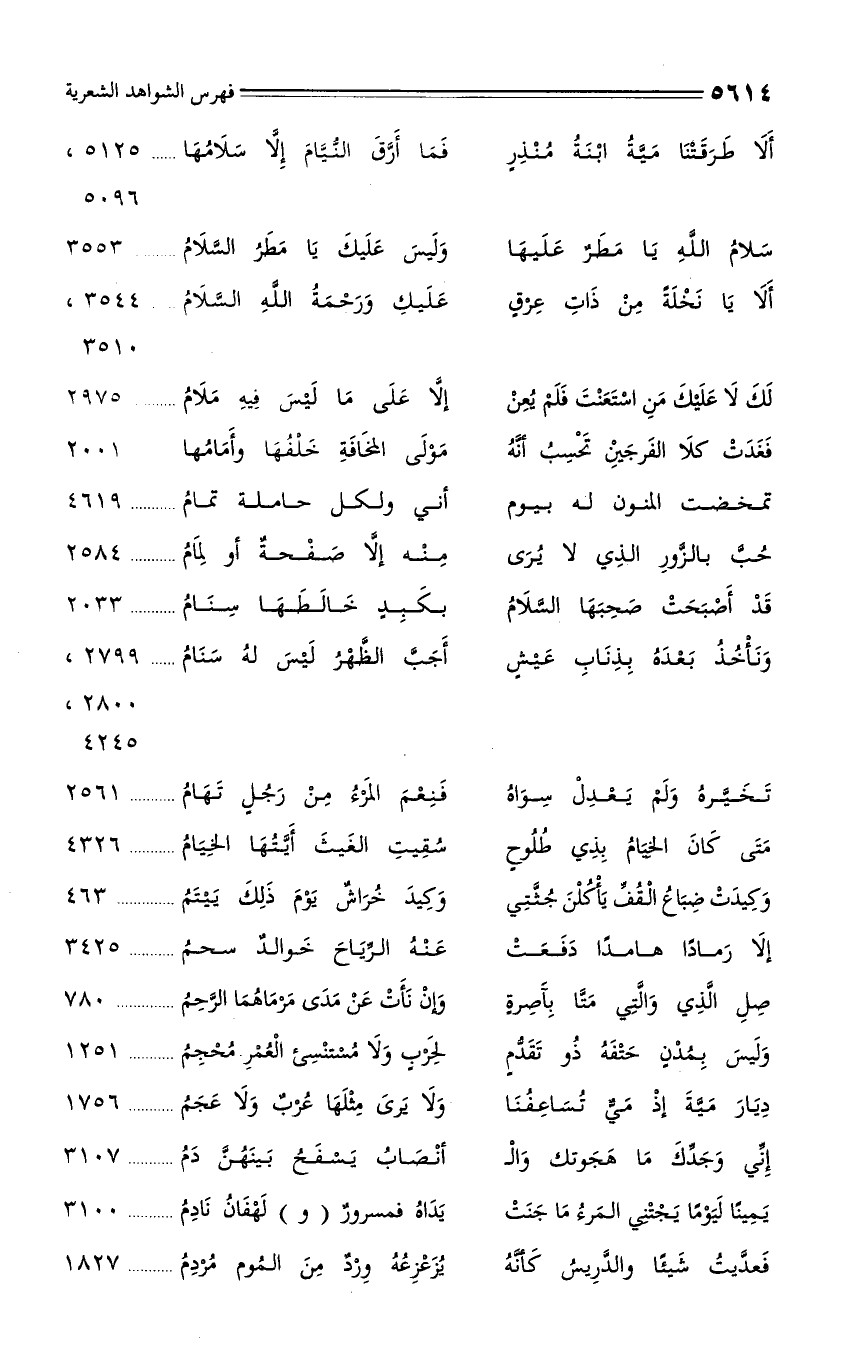 ٥٦١٤ فهرس الشواهد الشعرية
أَلَا طَرَقَتْنَا مَيَّةُ ابْنَةُ مُنْذِرٍ فَمَا أَرَّقَ النُّيَّامَ إِلَّا سَلَامُهَا ...... ٥١٢٥ ،
٥٠٩٦
سَلامُ اللَّهِ يَا مَطَرٌ عَلَيهَا وَلَيسَ عَلَيكَ يَا مَطَرُ السَّلَامُ ........... ٣٥٥٣
أَلَا يَا نَخْلَةً مِنْ ذَاتِ عِرْقٍ عَلَيكِ وَرَحْمَةُ اللَّهِ السَّلَامُ ...... ٣٥٤٤ ،
٣٥١٠
لَكَ لَا عَلَيْكَ مَنِ اسْتَعَنْتَ فَلَمْ يُعِنْ إلَّا عَلَى مَا لَيْسَ فِيهِ مَلَامُ ........... ٢٩٧٥
فَغَدَتْ كلَا الفَرجَيْنِ تَحْسِبُ أنَّهُ مَوْلَى المَخَافَةِ خَلْفُهَا وأَمَامُها ٢٠٠١
تمخضت المنون له بيوم أنى ولكل حاملة تمامُ ........... ٤٦١٩
حُبَّ بالزَّورِ الذِي لا يُرَى مِنْه إلَّا صَفْحةٌ أو لِمَامُ ........... ٢٥٨٤
قَدْ أَصْبَحَتْ صَحِبَهَا السَّلَامُ بكَبِدٍ خَالَطَهَا سِنَامُ ........... ٢٠٣٣
وَنَأْخُذُ بَعْدَهُ بِذِنَابِ عَيْشٍ أَجَبَّ الظَّهْرُ لَيْسَ لهُ سَنَامُ ...... ٢٧٩٩ ،
٢٨٠٠ ،
٤٢٤٥
تَخَيَّرهُ وَلَمْ يَعْدِلْ سِوَاهُ فَنِعْمَ المَرْءُ مِنْ رَجُلٍ تَهَامُ ........... ٢٥٦١
مَتَى كَانَ الخِيَامُ بِذِي طُلُوحٍ سُقِيتِ الغَيثَ أَيَّتُهَا الخِيَامُ ........... ٤٣٢٦
وَكِيدَتْ ضِبَاعُ الْقُفِّ يَأْكُلْنَ جُثَّتِي وَكِيدَ خُرَاشٌ يَوْمَ ذَلِكَ يَيْتَمُ ............ ٤٦٣
إلَا رَمادًا هامدًا دَفَعَتْ عَنْهُ الرِّيَاحَ خَوالدٌ سحمُ ........... ٣٤٢٥
صِلِ الَّذِي وَالَّتِي مَتَّا بِآصِرةٍ وَإِنْ نَأَتْ عَنْ مَدَى مَرْمَاهُمَا الرَّحِمُ ............ ٧٨٠
وَلَيسَ بِمُدْنٍ حَتْفَهُ ذُو تَقَدُّمٍ لِحَرْبٍ وَلَا مُسْتَنْسِئِ الْعُمْرِ مُحْجِمُ ........... ١٢٥١
دِيَارَ مَيَّةَ إذْ مَيٌّ تُسَاعِفُنَا وَلَا يَرىَ مِثْلَهَا عُرْبٌ وَلَا عَجَمُ ........... ١٧٥٦
إنِّي وَجَدِّكَ مَا هَجَوتك وَالْـ أنْصَابُ يَسْفَحُ بَينَهُنَّ دَمُ ........... ٣١٠٧
يَمِينًا لَيَوْمًا يَجْتْنِي المَرءُ مَا جَنَتْ يَدَاهُ فمسرورٌ ( و ) لَهْفَانُ نَادِمُ ........... ٣١٠٠
فَعدَّيتُ شَيئًا والدَّرِيسُ كَأنَّهُ يُزَعْزِعُهُ وِرْدٌ مِنَ المُومِ مُرْدِمُ ........... ١٨٢٧